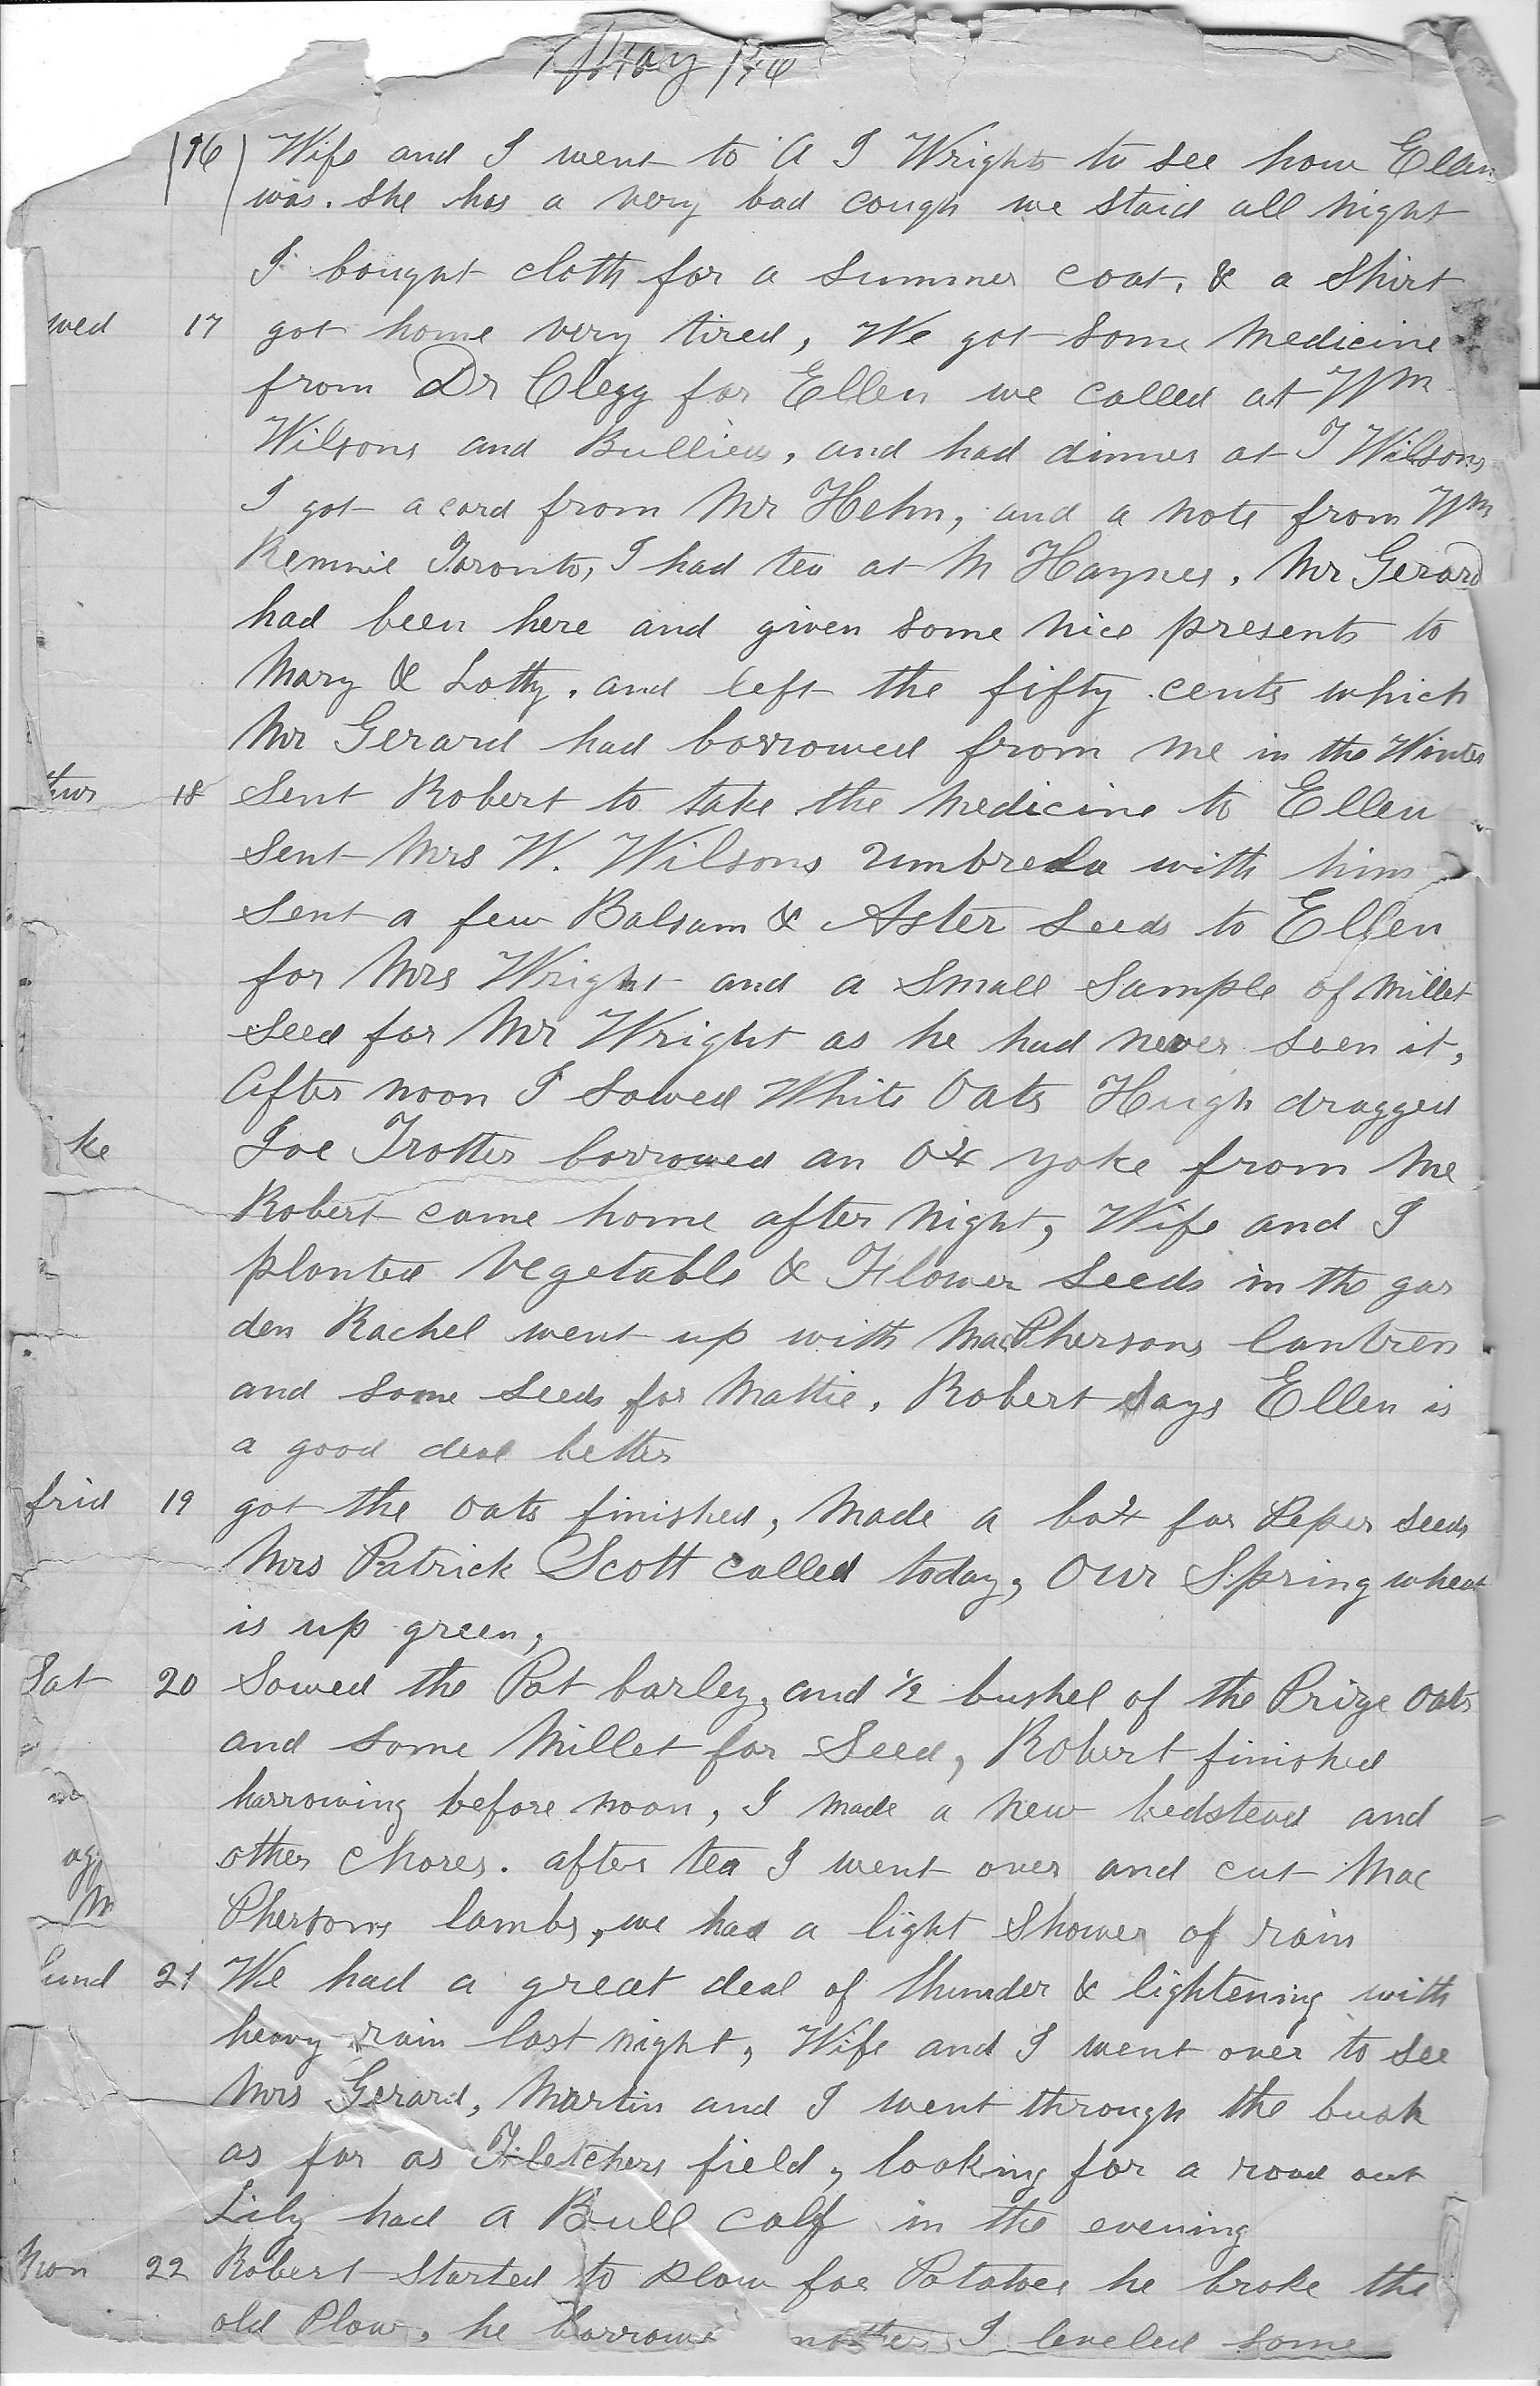 May
16 Wife and I went to A I Wrights to see how Ellen
was. She has a very bad cough we staid all night
I bought cloth for a summer coat, & a Shirt
wed 17 got home very tired, We got some medicine
from Dr Clegg for Ellen we called at Wm
Wilsons and , and had dinner at I Wilsons
I got a card from Mr Hehn, and a note from Wm
Rennie Toronto, I had tea at M Haynes. Mr Gerard
had been here and given some nice presents to
Mary & Lotty. and left the fifty cents which
Mr Gerard had borrowed from me in the Winter
thur 18 Sent Robert to take the medicine to Ellen
Sent Mrs W. Wilsons umbrela with him
Sent a few Balsam & Aster seeds to Ellen
for Mrs Wright and a small sample of millet
seed for Mr Wright as he had never seen it,
After noon I sowed White Oats Hugh dragged
ke Joe Trotter borrowed an Ox yoke from me
Robert came home after night, Wife and I
planted vegetable & Flower seeds in the gar
den Rachel went up with MacPhersons lantren
and some seeds for Mattie. Robert says Ellen is
a good deal better
frid 19 got the oats finished, made a box for Peper seeds
Mrs Patrick Scott called today, Our Spring wheat
is up green,
Sat 20 Sowed the Pot barley, and 1/2 bushel of the Prize oats
and some Millet for Seed, Robert finished
harrowing before noon, I made a new bedstead and
other chores. after tea I went over and cut Mac
Phersons lambs, we had a light Shower of rain
Sund 21 We had a great deal of thunder & lightening with
heavy rain last night, Wife and I went over to see
Mrs Gerard, Martin and I went through the bush
as far as Fletchers field, looking for a road out
Lily had a Bull calf in the evening
Mon 22 Robert Started to plow for Potatoes he broke the
old Plow, he I leveled some